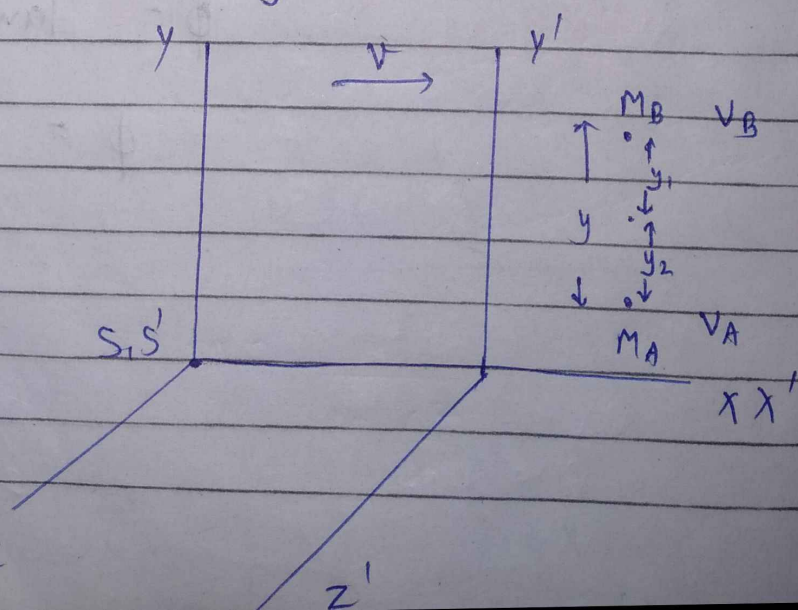 y
V
y'
M_B
V_B
y_1
y
y_2
S, S'
V_A
M_A
X X'
Z'